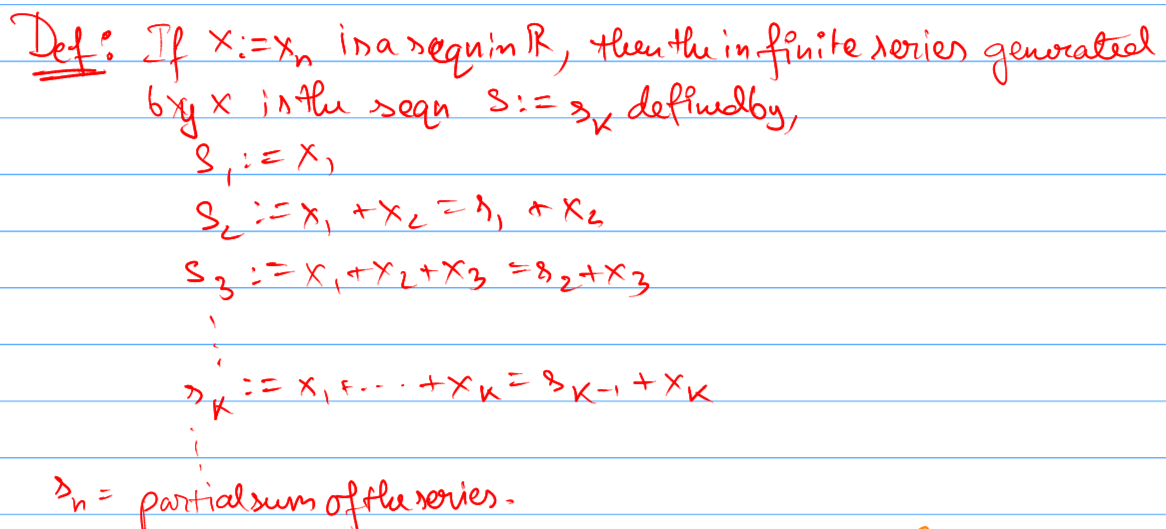 Def: If X:=xₙ is a seqn in ℝ, then the infinite series generated
by X is the seqn S:=s_k defined by,
S₁:=X₁
S₂:=X₁+X₂=s₁+X₂
S₃:=X₁+X₂+X₃=s₂+X₃
⋮
s_k:=X₁+....+X_k=s_{k-1}+X_k
⋮
sₙ= partial sum of the series.